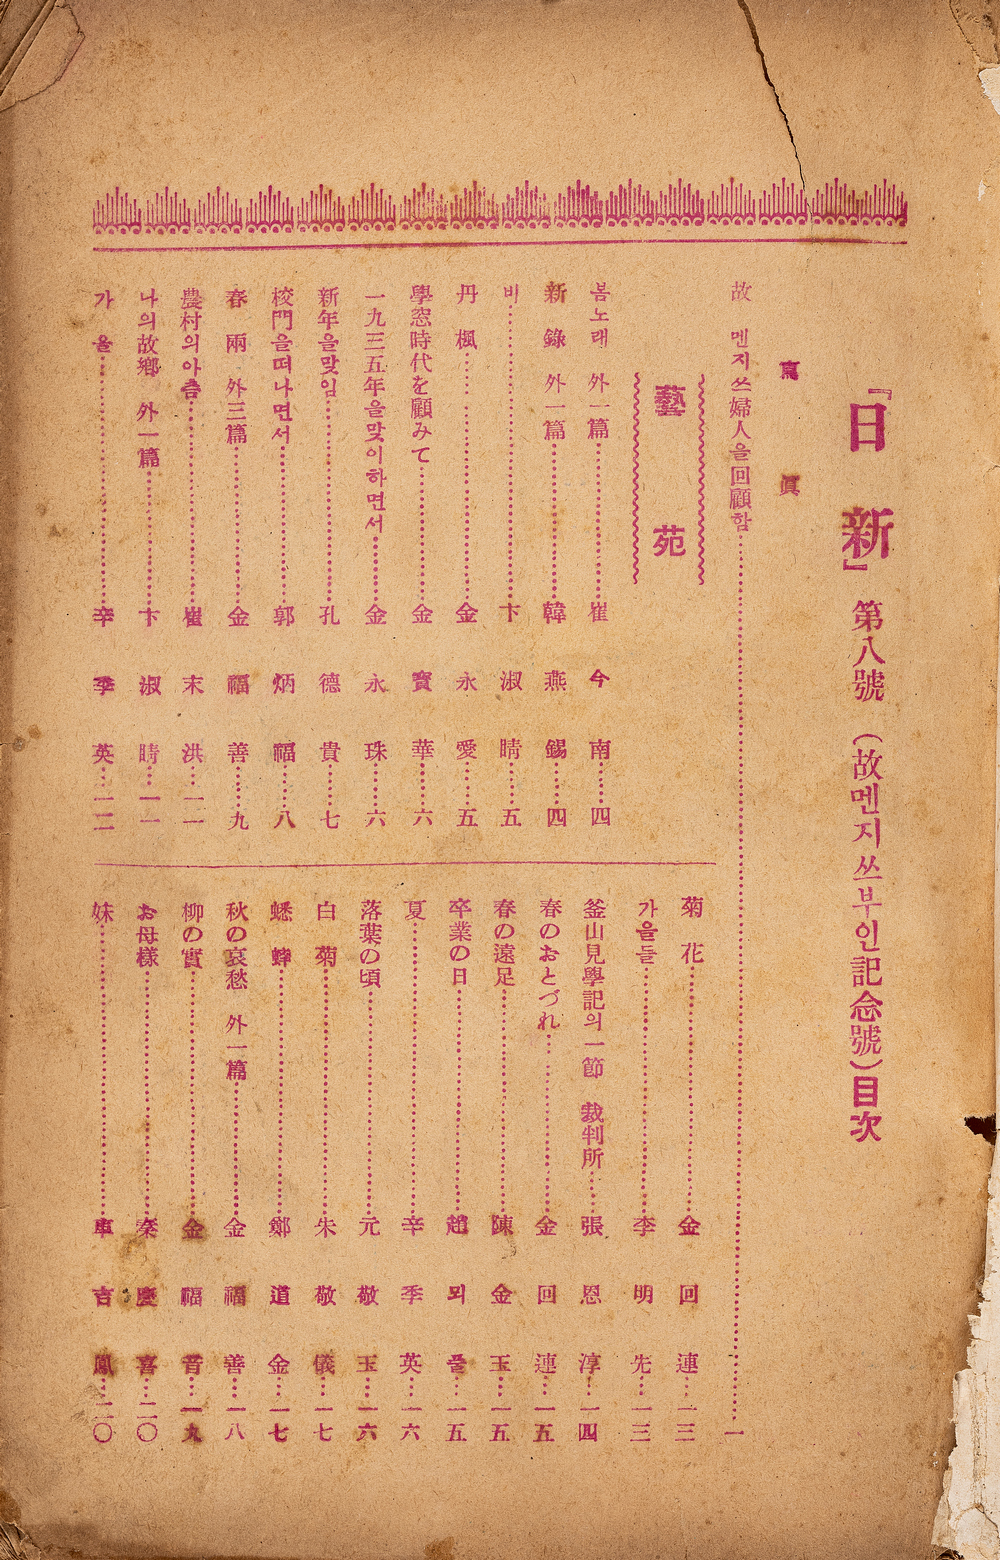 『日新』第八號 (故멘지쓰부인記念號)目次
寫眞
故 멘지쓰婦人을回顧함……一
藝苑
봄노래 外一篇……崔今南……四
新錄 外一篇……韓燕錫……四
비……卞淑晴……五
丹楓……金永愛……五
學窓時代を顧みて……金寶華……六
一九三五年을맞이하면서……金永珠……六
新年을맞임……孔德貴……七
校門을떠나면서……郭炳福……八
春雨 外三篇……金福善……九
農村의아츰……崔末洪……一一
나의故鄕 外一篇……卞淑晴……一一
가을……辛季英……一二
菊花……金回連……一三
가을들……李明先……一三
釜山見學記의一節 裁判所……張恩淳……一四
春のおとづれ……金回連……一五
春の遠足……陳金玉……一五
卒業の日……趙뫼풀……一五
夏……辛季英……一六
落葉の頃……元敬玉……一六
白菊……朱敬儀……一七
蟋蟀……鄭道金……一七
秋の哀愁 外一篇……金福善……一八
柳の實……金福音……一九
お母樣……秦慶喜……二〇
妹……車吉鳳……二〇